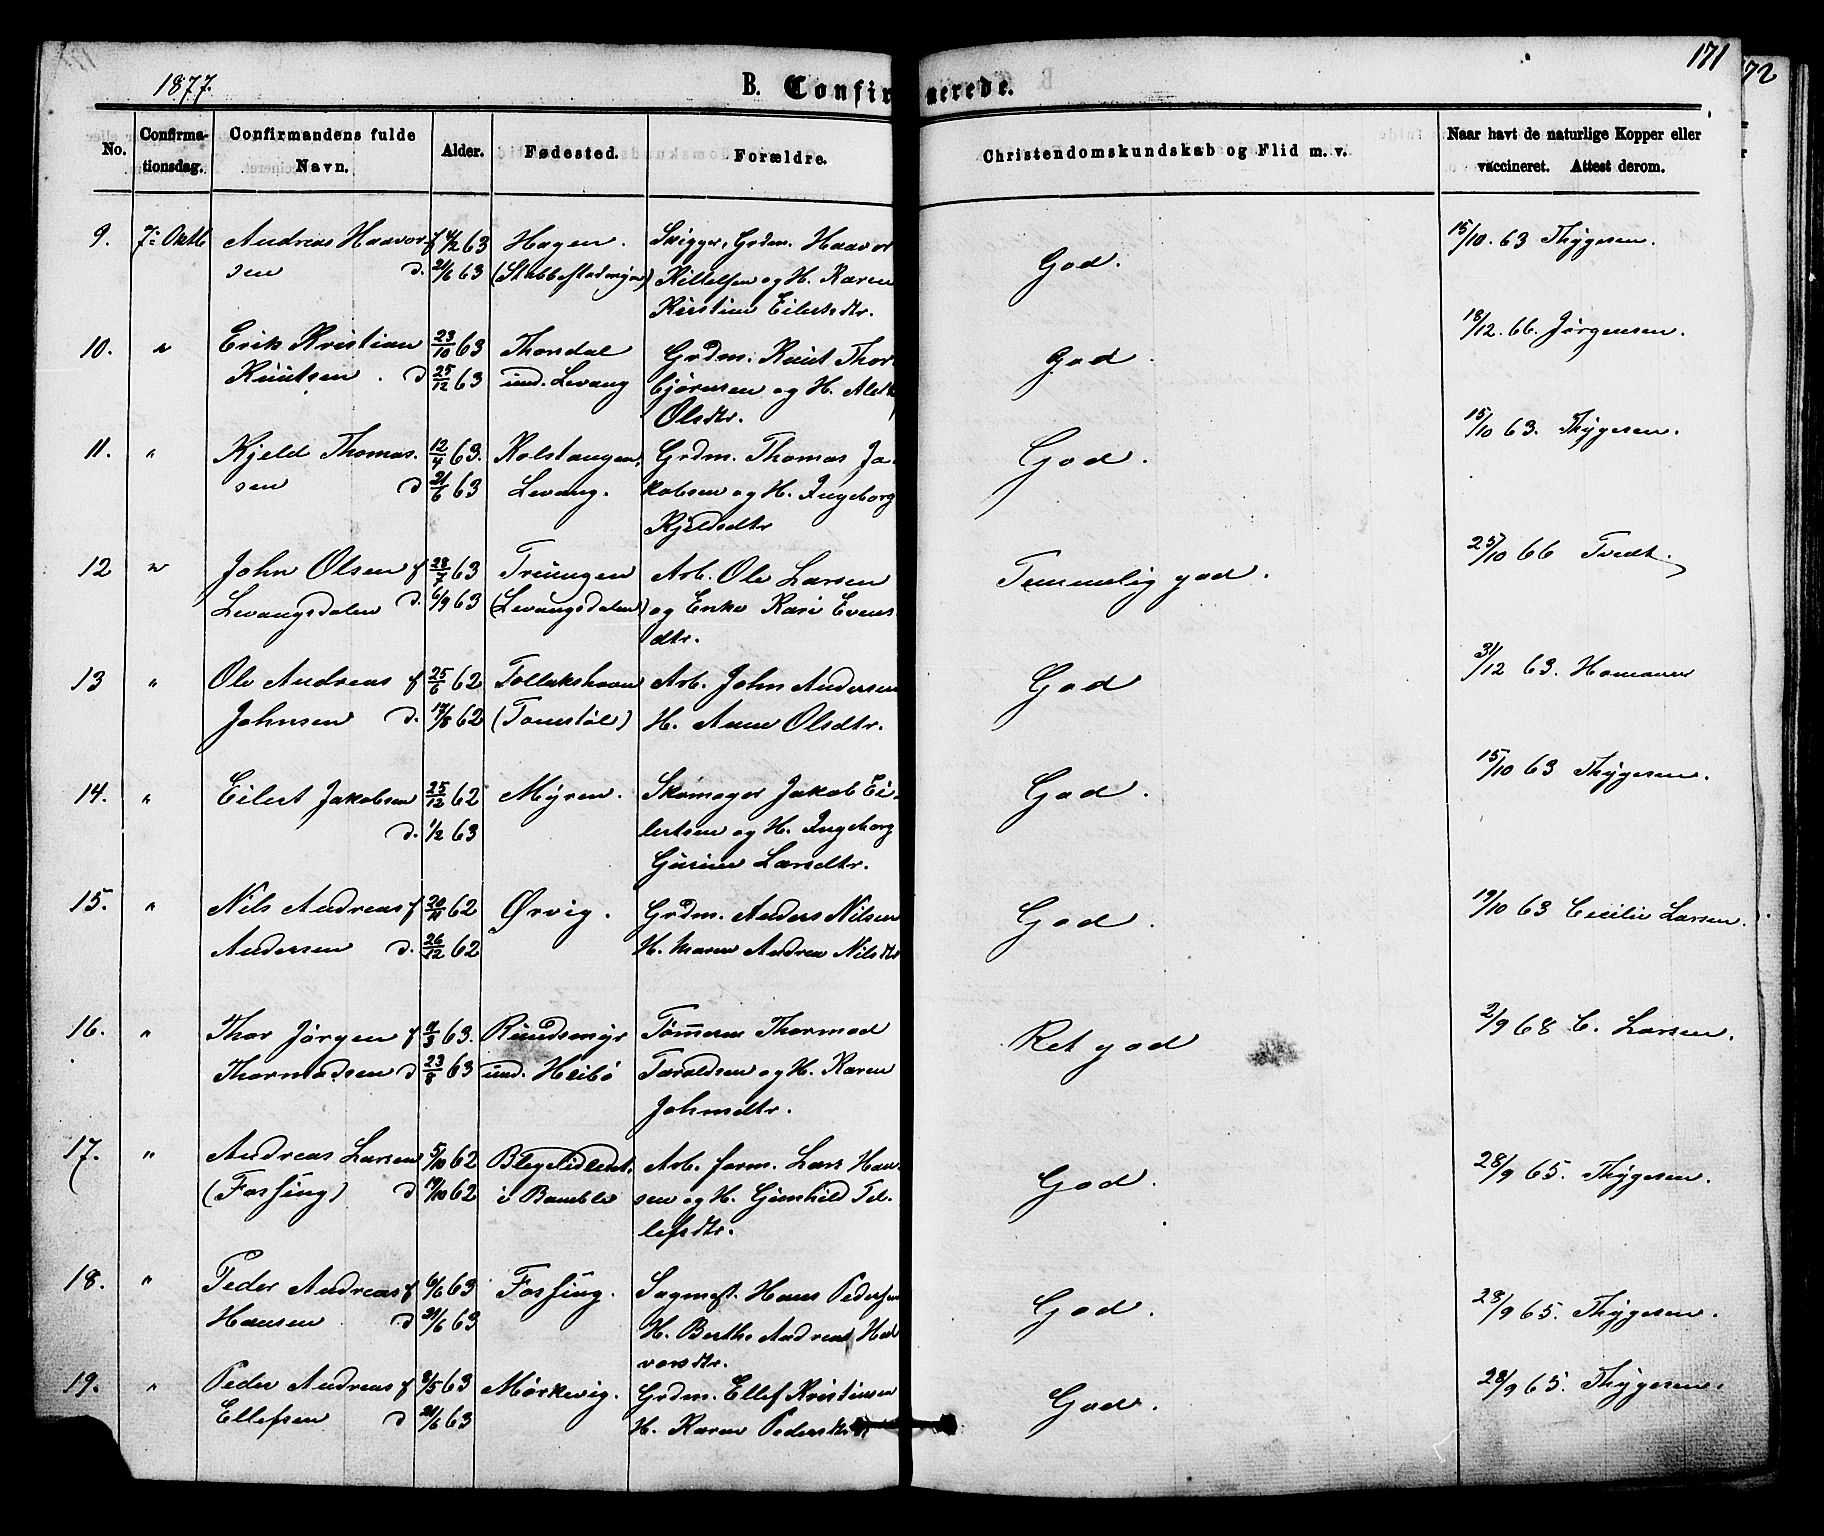 1877.
B. Confirmerede.
171
172
No.
Confirmationsdag.
Confirmandens fulde Navn.
Alder.
Fødested.
Forældre.
Christendomskundskab og Flid m. v.
Naar havt de naturlige Kopper eller vaccineret. Attest derom.
9. 7: Oktb Andreas Haavor f 4/2 63 Hagen. Grdm. Haavor God. 15/10. 63 Thygesen.
sen d. 21/6 63 Kittelsen og H. Karen
Kirstine Eilertsdtr.
10. " Erik Kristian 23/10 63 Thorsdal Grdm. Knut Thor God. 18/12. 66. Jørgensen.
Knutsen. d 25/12 63 und. Levang bjørnsen og H.
Olsdtr.
11. " Kjeld Thomas. 12/4 63. Rolstangen, Grdm. Thomas Ja- God. 15/10 63. Thygesen.
sen d 21/6 63 Levang. kobsen og H. Ingeborg
Kjeldsdtr
12 " John Olsen f 28/7 63 Truungen Arb. Ole Larsen Temmelig god. 25/10 66 Tvedt.
Levangsdalen d. 6/9 63 (Levangsdalen) og Enke Kari Evens
dtr.
13 " Ole Andreas f 25/6 62 Tollakshavn Arb. John Andersen God 31/12 63. Homann
Johnsen d. 17/8 62 (Tonstøl) H. Anne Olsdtr.
14. " Eilert Jakobsen 25/12 62 Myren. Skomager Jakob Ei- God. 15/10 63 Thygesen.
d. 1/2 63 lertsen og H. Ingeborg
Gurine Larsdtr.
15. " Nils Andreas f 20/11 62 Ørvig. Grdm. Anders Nilsen God. 19/10 63 Cecilie Larsen.
Andersen d. 26/12 62 H. Maren Andrea Nilsdtr
16. " Thor Jørgen f 11/3 63. Rundsmyr Tømmerm Thormod Ret god 2/9 68 C. Larsen.
Thormodsen d 23/8 63 und. Heibö Taraldsen og H. Karen
Johnsdtr.
17. " Andreas Larsen 5/10 62 Arb. form. Lars Han God. 28/9 65. Thygesen.
(Fossing) d 19/10 62 i Bamble sen og H. Gunhild Tel-
lefsdtr.
18. " Peder Andreas f 6/6 63 Fossing. Sagmest. Hans Pedersen God. 28/9 65. Thygesen.
Hansen d 21/6 63 H. Berthe Andrea Hal
vorsdtr.
19. " Peder Andreas f 8/5 63 Mörkevig. Grdm. Ellef Kristensen God. 28/9 65. Thygesen.
Ellefsen d 21/6 63 H. Karen Pedersdtr